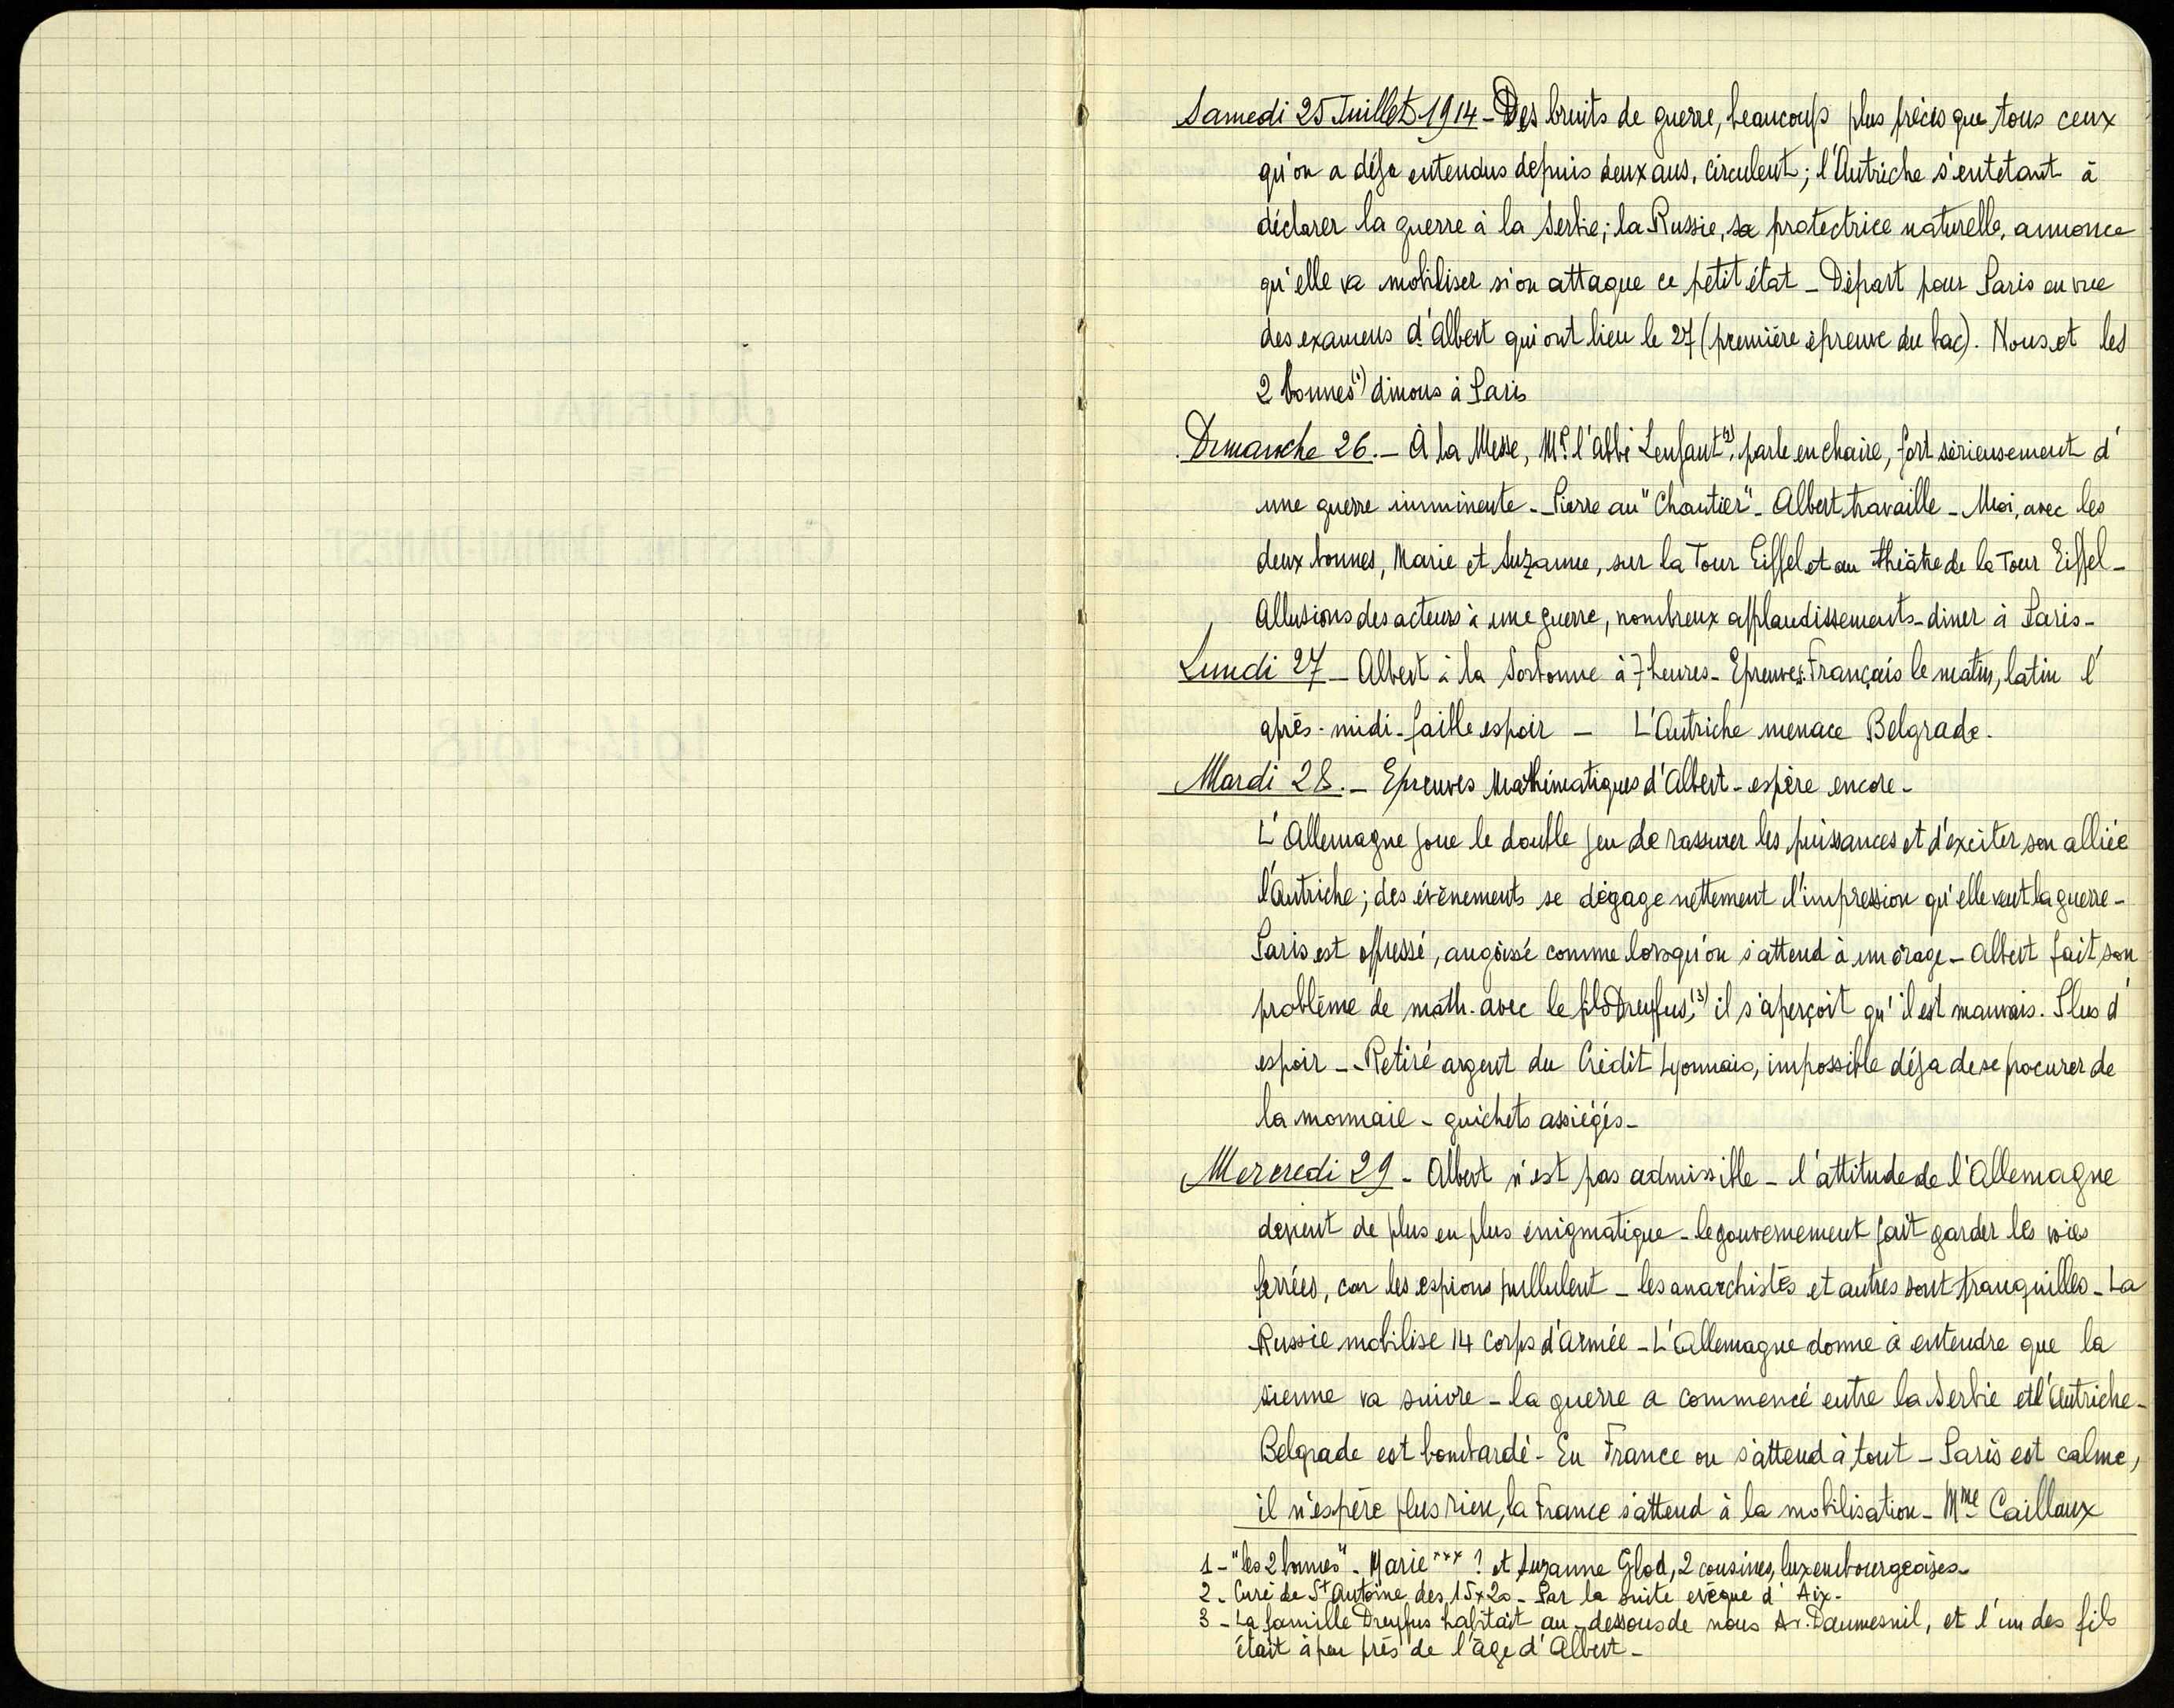 Samedi 25 Juillet 1914 - Des bruits de guerre, beaucoup plus précis que tous ceux
qu'on a déja entendus depuis deux ans, circulent ; l'Autriche s'entêtant à
déclarer la guerre à la Serbie ; la Russie, sa protectrice naturelle, annonce
qu'elle va mobiliser si on attaque ce petit état - Départ pour Paris en vue
des examens d'Albert qui ont lieu le 27 (première épreuve du bac). Nous et les
2 bonnes (1) dinons à Paris
Dimanche 26. - À la Messe, Mr. l'Abbé Lenfant (2), parle en chaire, fort sérieusement d'
une guerre imminente - Pierre au "Chantier" - Albert travaille - Moi, avec les
deux bonnes, Marie et Suzanne, sur la Tour Eiffel et au théâtre de la Tour Eiffel -
Allusions des acteurs à une guerre, nombreux applaudissements - diner à Paris -
Lundi 27 - Albert à la Sorbonne à 7 heures - Epreuves : Français le matin, latin l'
après-midi - faible espoir - L'Autriche menace Belgrade.
Mardi 28. - Epreuves Mathématiques d'Albert - espère encore -
L'Allemagne joue le double jeu de rassurer les puissances et d'exciter son alliée
l'Autriche ; des évènements se dégage nettement l'impression qu'elle veut la guerre -
Paris est oppressé, angoissé comme lorsqu'on s'attend à un orage - Albert fait son
problème de math. avec le fils Dreyfus, (3) il s'aperçoit qu'il est mauvais. Plus d'
espoir - Retiré argent du Crédit Lyonnais, impossible déja de se procurer de
la monnaie - guichets assiégés -
Mercredi 29 - Albert n'est pas admissible - l'attitude de l'Allemagne
devient de plus en plus énigmatique - le gouvernement fait garder les voies
ferrées, car les espions pullulent - les anarchistes et autres sont tranquilles - La
Russie mobilise 14 corps d'armée - L'Allemagne donne à entendre que la
sienne va suivre - la guerre a commencé entre la Serbie et l'Autriche -
Belgrade est bombardé - En France on s'attend à tout - Paris est calme,
il n'espère plus rien, la France s'attend à la mobilisation - Mme Caillaux
1 - "les 2 bonnes" - Marie xxx ? et Suzanne Glod, 2 cousines, luxembourgeoises -
2 - Curé de St Antoine des 15x20 - Par la suite evêque d'Aix -
3 - La famille Dreyfus habitait au-dessous de nous Av. Daumesnil, et l'un des fils
était à peu près de l'âge d'Albert -